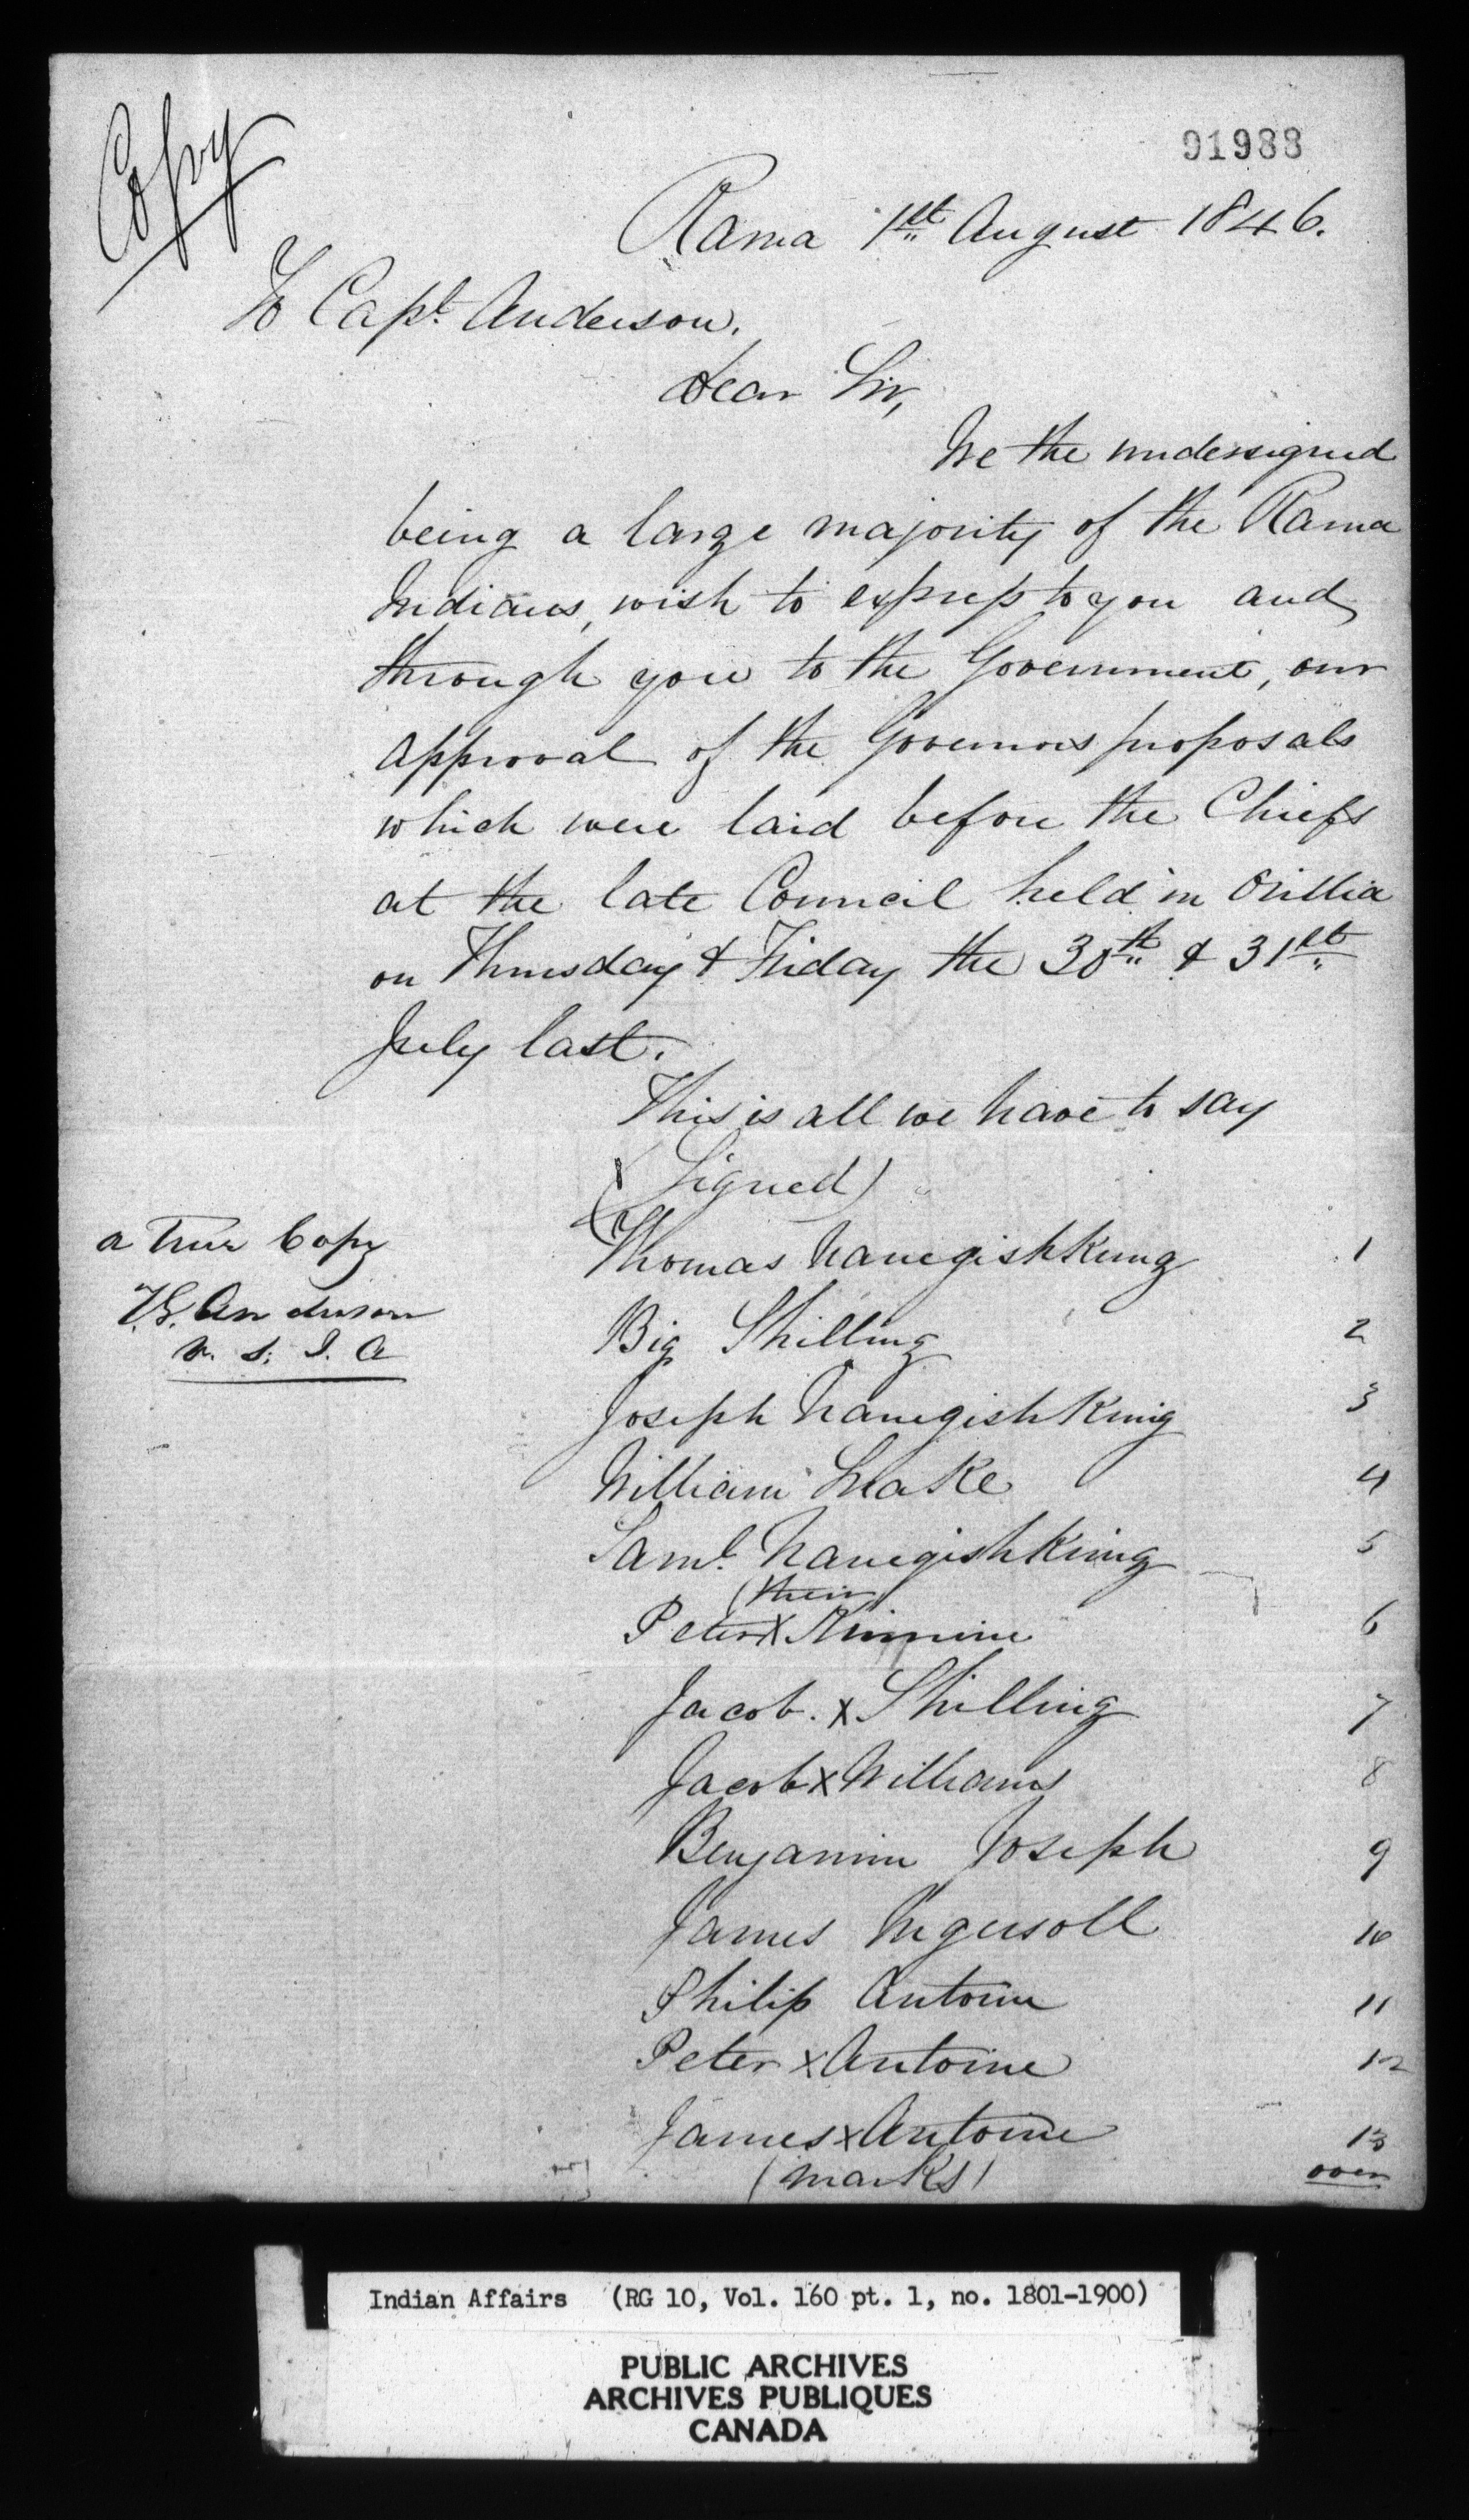 Copy
91988
Rama 1st August 1846.
To Capt Anderson.
Dear Sir,
We the undersigned
being a large majority of the Rama
Indians, wish to express to you and
through you to the Government, our
approval of the Governors proposals
which were laid before the Chiefs
at the late Council held in Orillia
on Thursday & Friday the 30th & 31st
July last.
This is all we have to say
(Signed)
Thomas Nanegishkung 1
a True Copy
T.G. Anderson
V. S. I. A
Big Shilling 2
Joseph Nanegishkung 3
William Snake 4
Saml Nanegishkung 5
(their
Peter X 6
Jacob. X Shilling 7
Jacob X Williams 8
Benjamin Joseph 9
James Ingersoll 10
Philip Antoine 11
Peter X Antoine 12
James X Antoine 13
(marks) over
Indian Affairs (RG 10, Vol. 160 pt. 1, no. 1801-1900)
PUBLIC ARCHIVES
ARCHIVES PUBLIQUES
CANADA